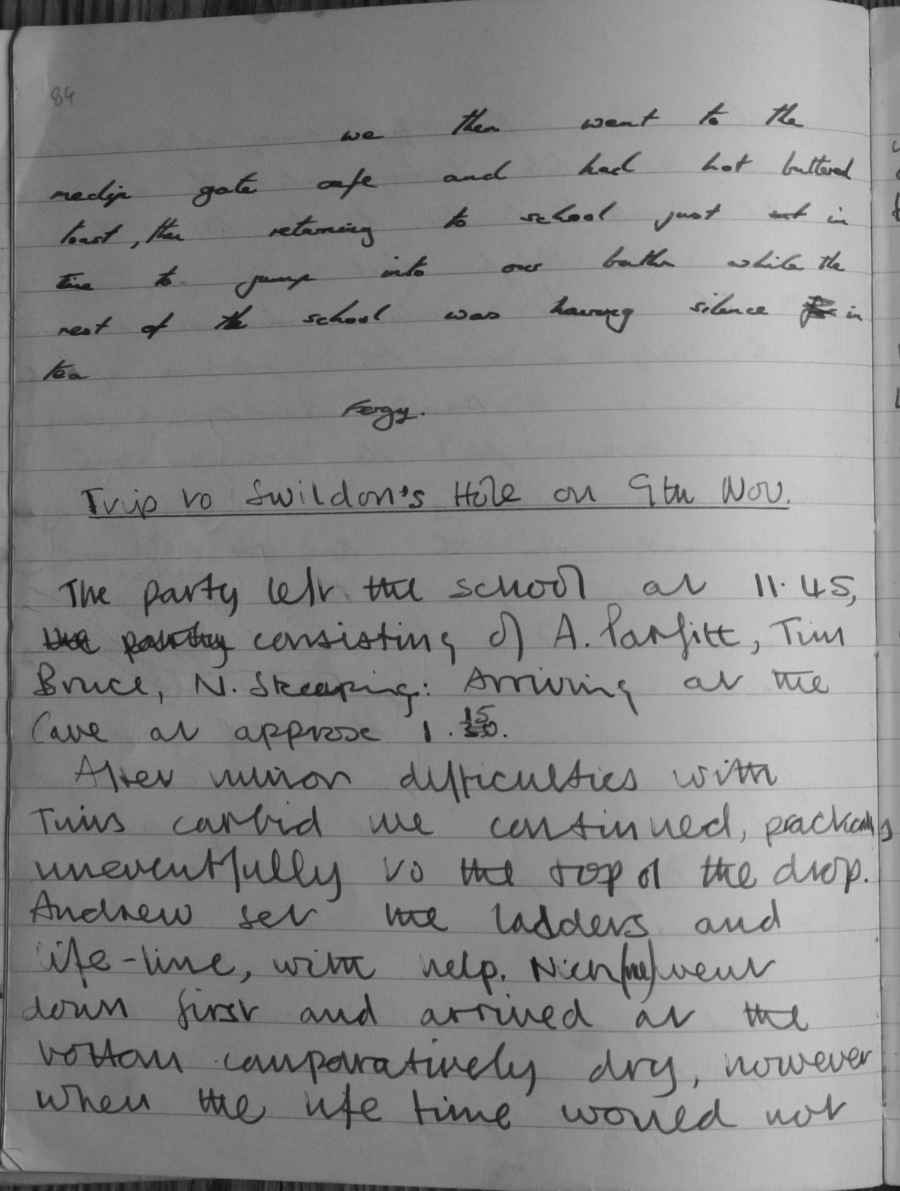 84
we then went to the
gate cafe and had hot buttered
toast, then retarning to school just in
time to jump into our baths while the
rest of the school was having silence in
tea
Fergy.
Trip to Swildon's Hole on 9th Nov.
The party left the school at 11.45,
the consisting of A. Parfitt, Tim
Bruce, N. Skeeping: Arriving at the
Cave at approx 1.15.
After minor difficulties with
Tims carbid we continued,
uneventfully to the top of the drop.
Andrew set the ladders and
life-line, with help. Nick (me) went
down first and arrived at the
bottom comparatively dry, however
when the life time would not